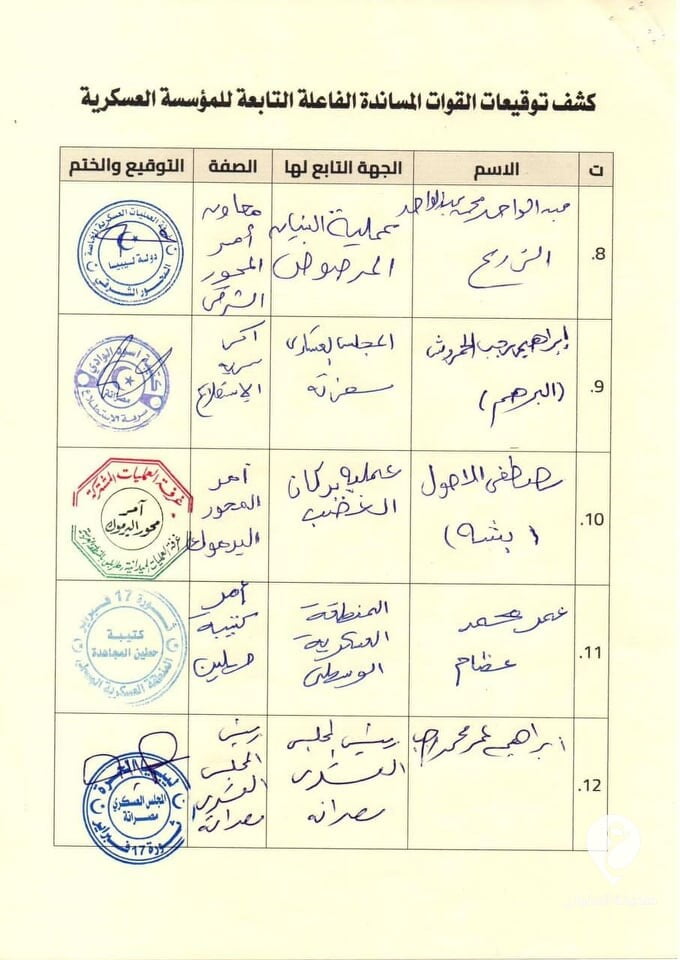 كشف توقيعات القوات المساندة الفاعلة التابعة للمؤسسة العسكرية
ت الاسم الجهة التابع لها الصفة التوقيع والختم
8.
عبد الواحد محمد عبد الواحد
عملية البنيان
المرصوص
معاون
آمر
المحور
الشرقي
دولة ليبيا
المحور الشرقي
9.
إبراهيم رجب
(البرهم)
المجلس العسكري
آمر
سرية
الاستطلاع
أسود الوادي
مصراتة
سرية الاستطلاع
10.
مصطفى
(بشه)
عملية بركان
الغضب
آمر
المحور
اليرموك
غرفة العمليات المشتركة
آمر
محور اليرموك
غرفة العمليات الميدانية
11.
عمر محمد
عظام
المنطقة
العسكرية
الوسطى
آمر
كتيبة
حطين
ثورة 17 فبراير
كتيبة
حطين المجاهدة
المنطقة العسكرية الوسطى
12.
ابراهيم عمر محمد رجب
رئيس المجلس
العسكري
مصراته
رئيس
المجلس
العسكري
مصراته
ليبيا الحرة
المجلس العسكري
مصراتة
ثورة 17 فبراير